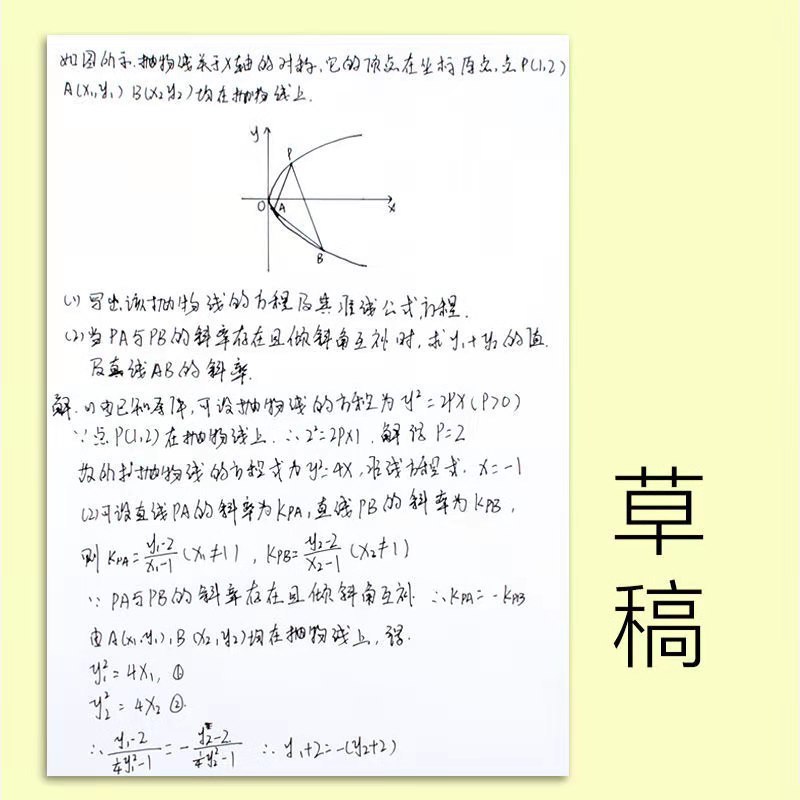 如图所示.抛物线关于X轴的对称,它的顶点在坐标原点,点P(1,2)
A(X₁,y₁) B(X₂ y₂)均在抛物线上.
y
P
O
A
x
B
(1)写出该抛物线的方程及其准线公式方程.
(2)当PA与PB的斜率存在且倾斜角互补时,求y₁+y₂的值.
及直线AB的斜率.
解.(1)由已知条件,可设抛物线的方程为y²=2PX(P>0)
∵点P(1,2)在抛物线上.∴2²=2P×1.解得P=2
故所求抛物线的方程式为y²=4X,准线方程式.X=-1
(2)可设直线PA的斜率为KPA,直线PB的斜率为KPB,
则 KPA=(y₁-2)/(X₁-1) (X₁≠1), KPB=(y₂-2)/(X₂-1) (X₂≠1)
∵PA与PB的斜率存在且倾斜角互补.∴KPA=-KPB
由A(X₁,y₁),B(X₂,y₂)均在抛物线上,得.
y₁²=4X₁,①
y₂²=4X₂ ②.
∴(y₁-2)/(¼y₁²-1)=-(y₂-2)/(¼y₂²-1) ∴y₁+2=-(y₂+2)
草
稿